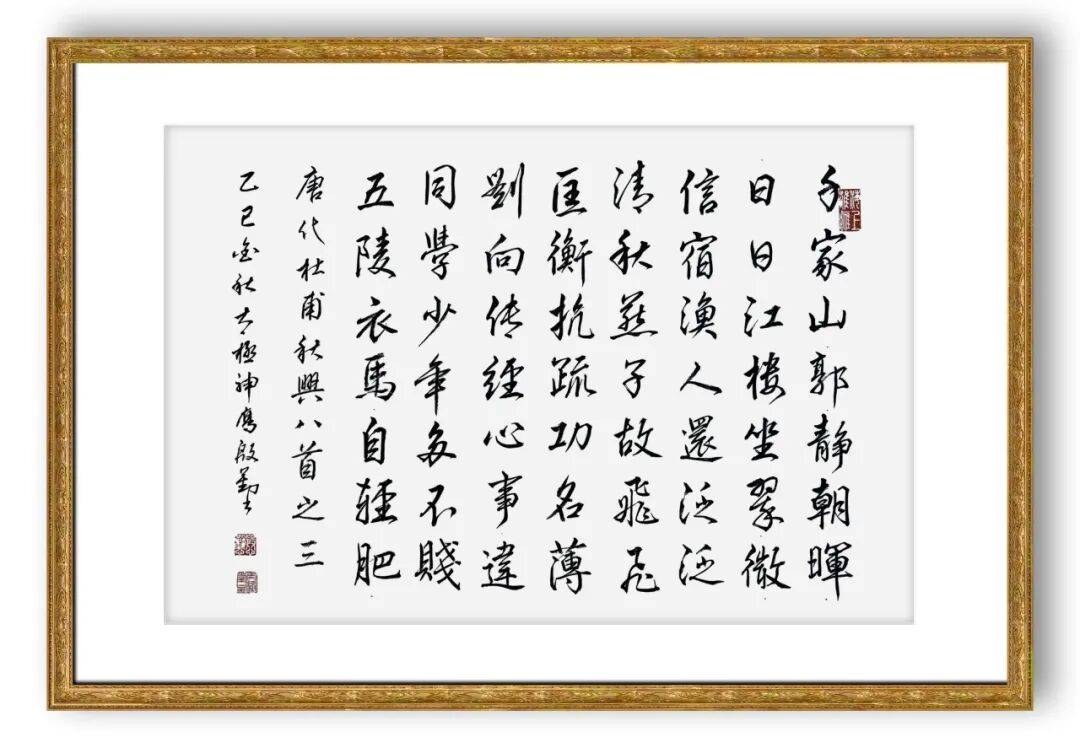 千家山郭静朝暉
日日江樓坐翠微
信宿漁人還泛泛
清秋燕子故飛飛
匡衡抗疏功名薄
劉向传經心事違
同學少年多不賤
五陵衣馬自輕肥
唐代杜甫秋興八首之三
乙巳金秋太極神鹰殷